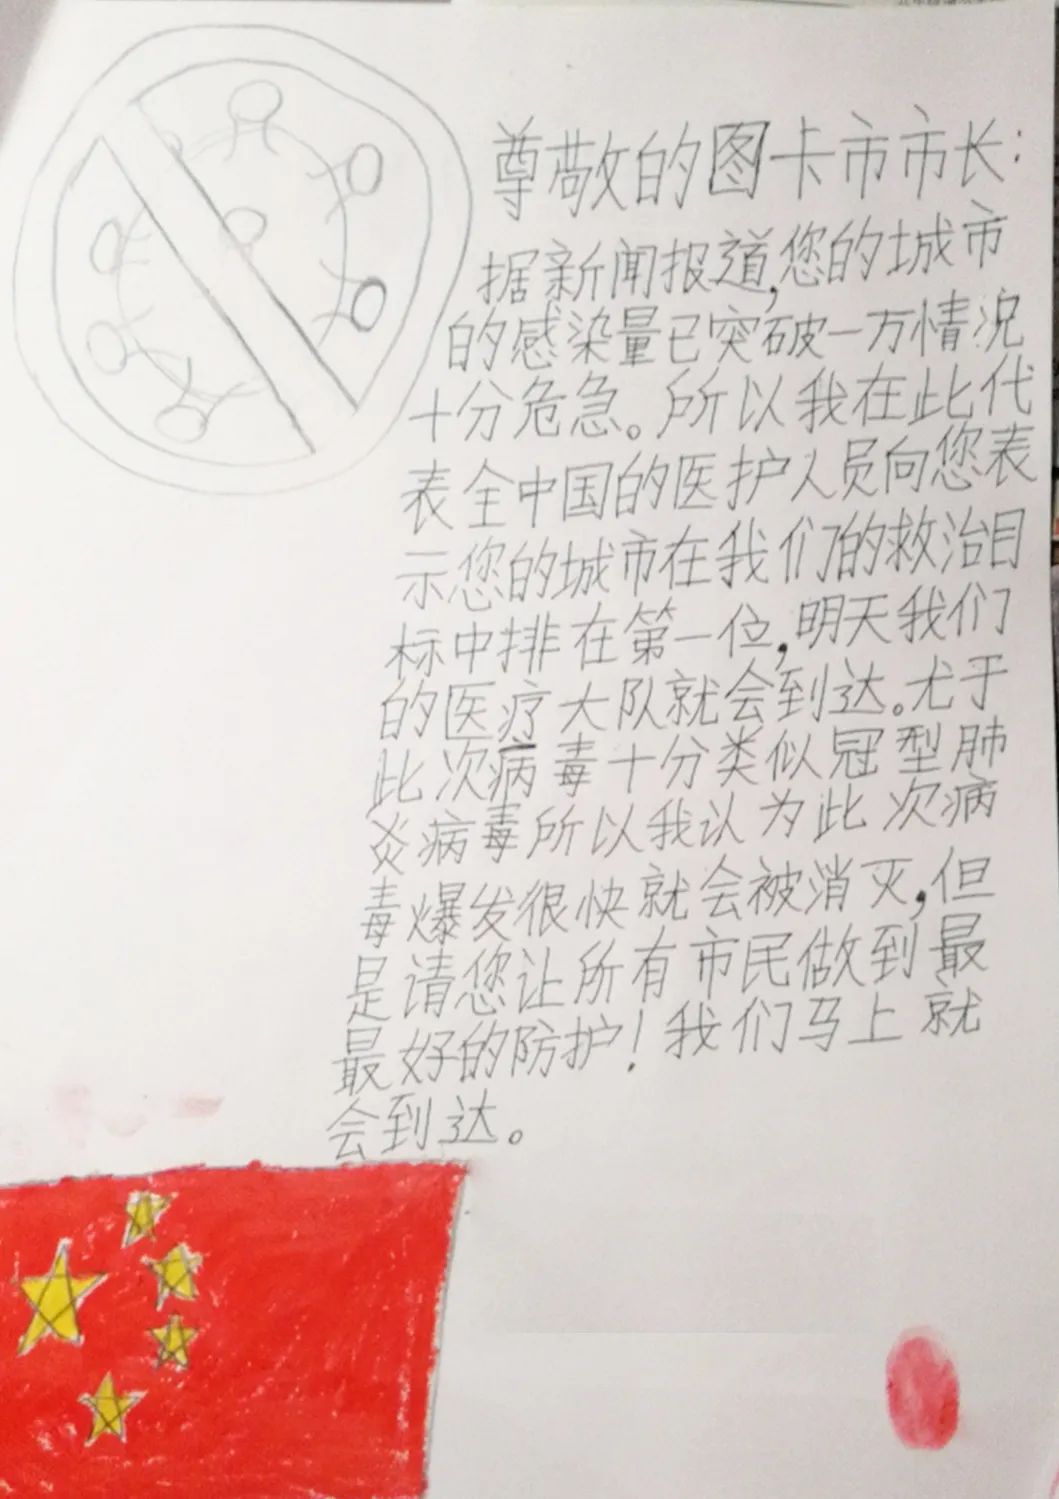 尊敬的图卡市市长：
据新闻报道,您的城市
的感染量已突破一万情况
十分危急。所以我在此代
表全中国的医护人员向您表
示您的城市在我们的救治目
标中排在第一位,明天我们
的医疗大队就会到达。尤于
此次病毒十分类似冠型肺
炎病毒所以我认为此次病
毒爆发很快就会被消灭,但
是请您让所有市民做到最
最好的防护!我们马上就
会到达。